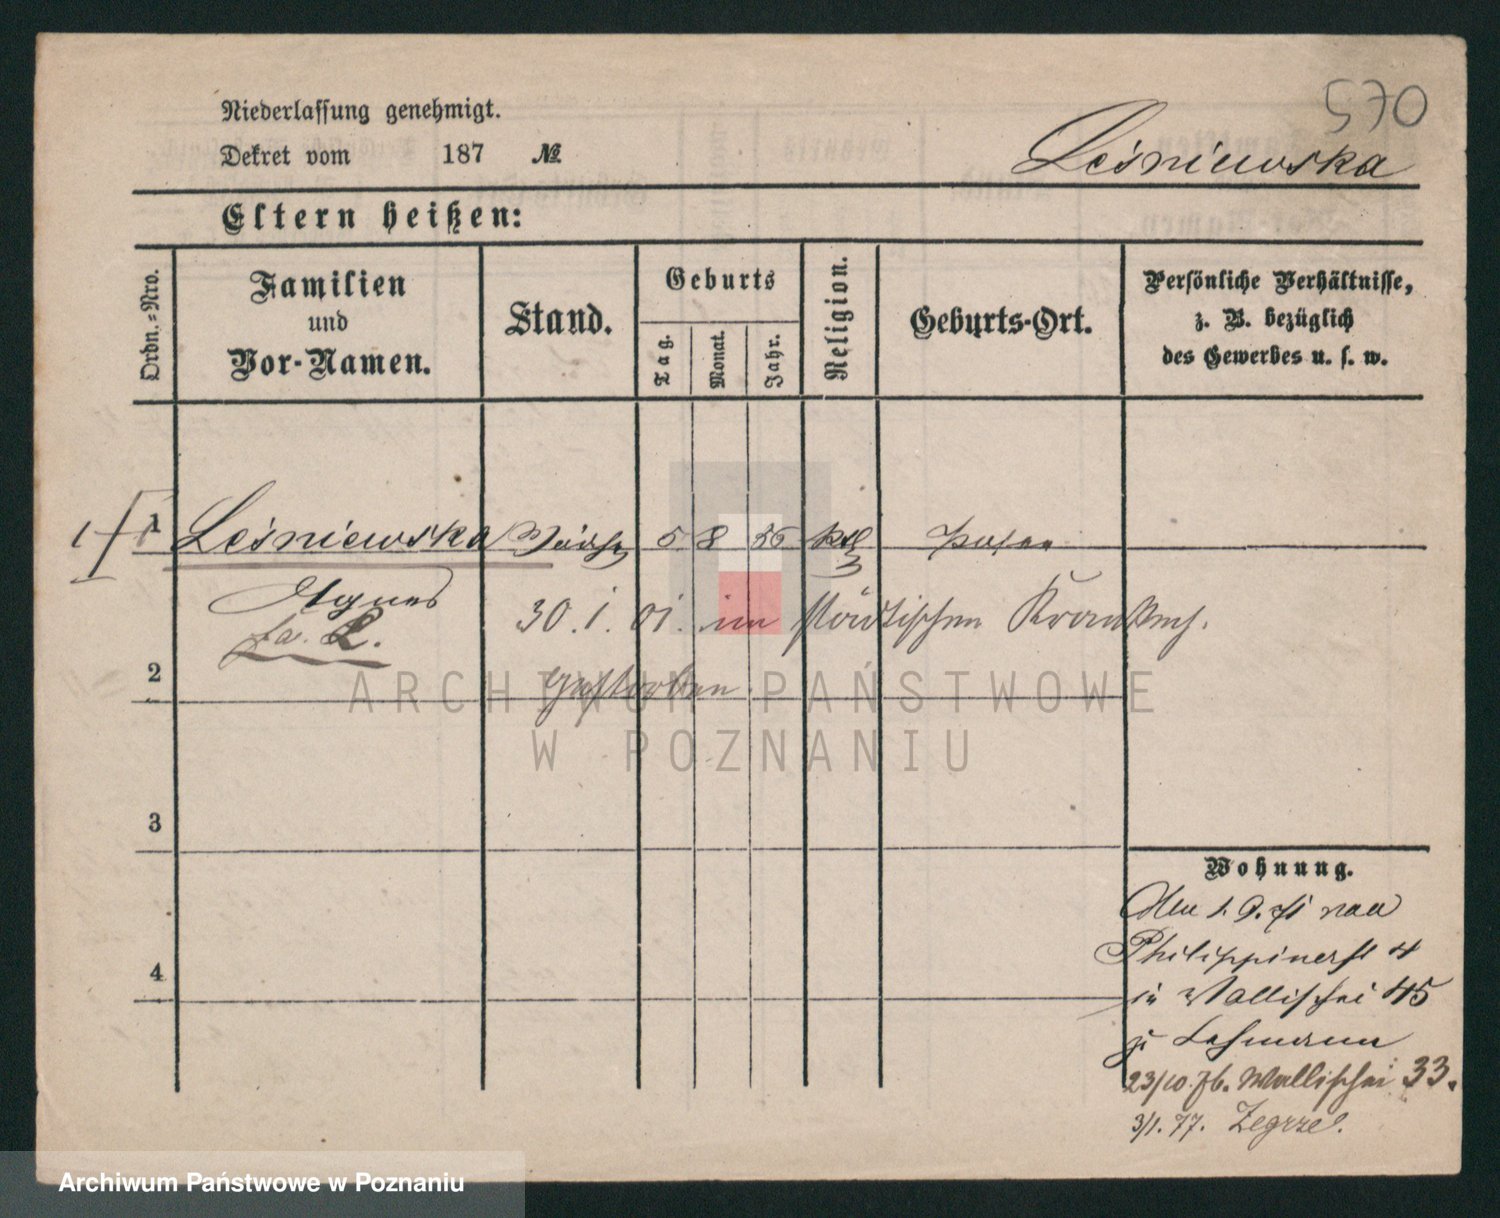 570
Niederlassung genehmigt.
Dekret vom 187 №
Leśniewska
Eltern heißen:
Ordn.-Nro.
Familien
und
Vor-Namen.
Stand.
Geburts
Tag.
Monat.
Jahr.
Religion.
Geburts-Ort.
Persönliche Verhältnisse,
z. B. bezüglich
des Gewerbes u. s. w.
1 1 Leśniewska 5 8 56 Posen
Agnes 30. 1. 01. im städtischen Krankenh.
2 gestorben
3
4
Wohnung.
Philippinerst 4
in Wallischei 45
zu Lehmann
23/10. 76. Wallischei 33.
3/1. 77. Zegrze.
ARCHIWUM PAŃSTWOWE
W POZNANIU
Archiwum Państwowe w Poznaniu